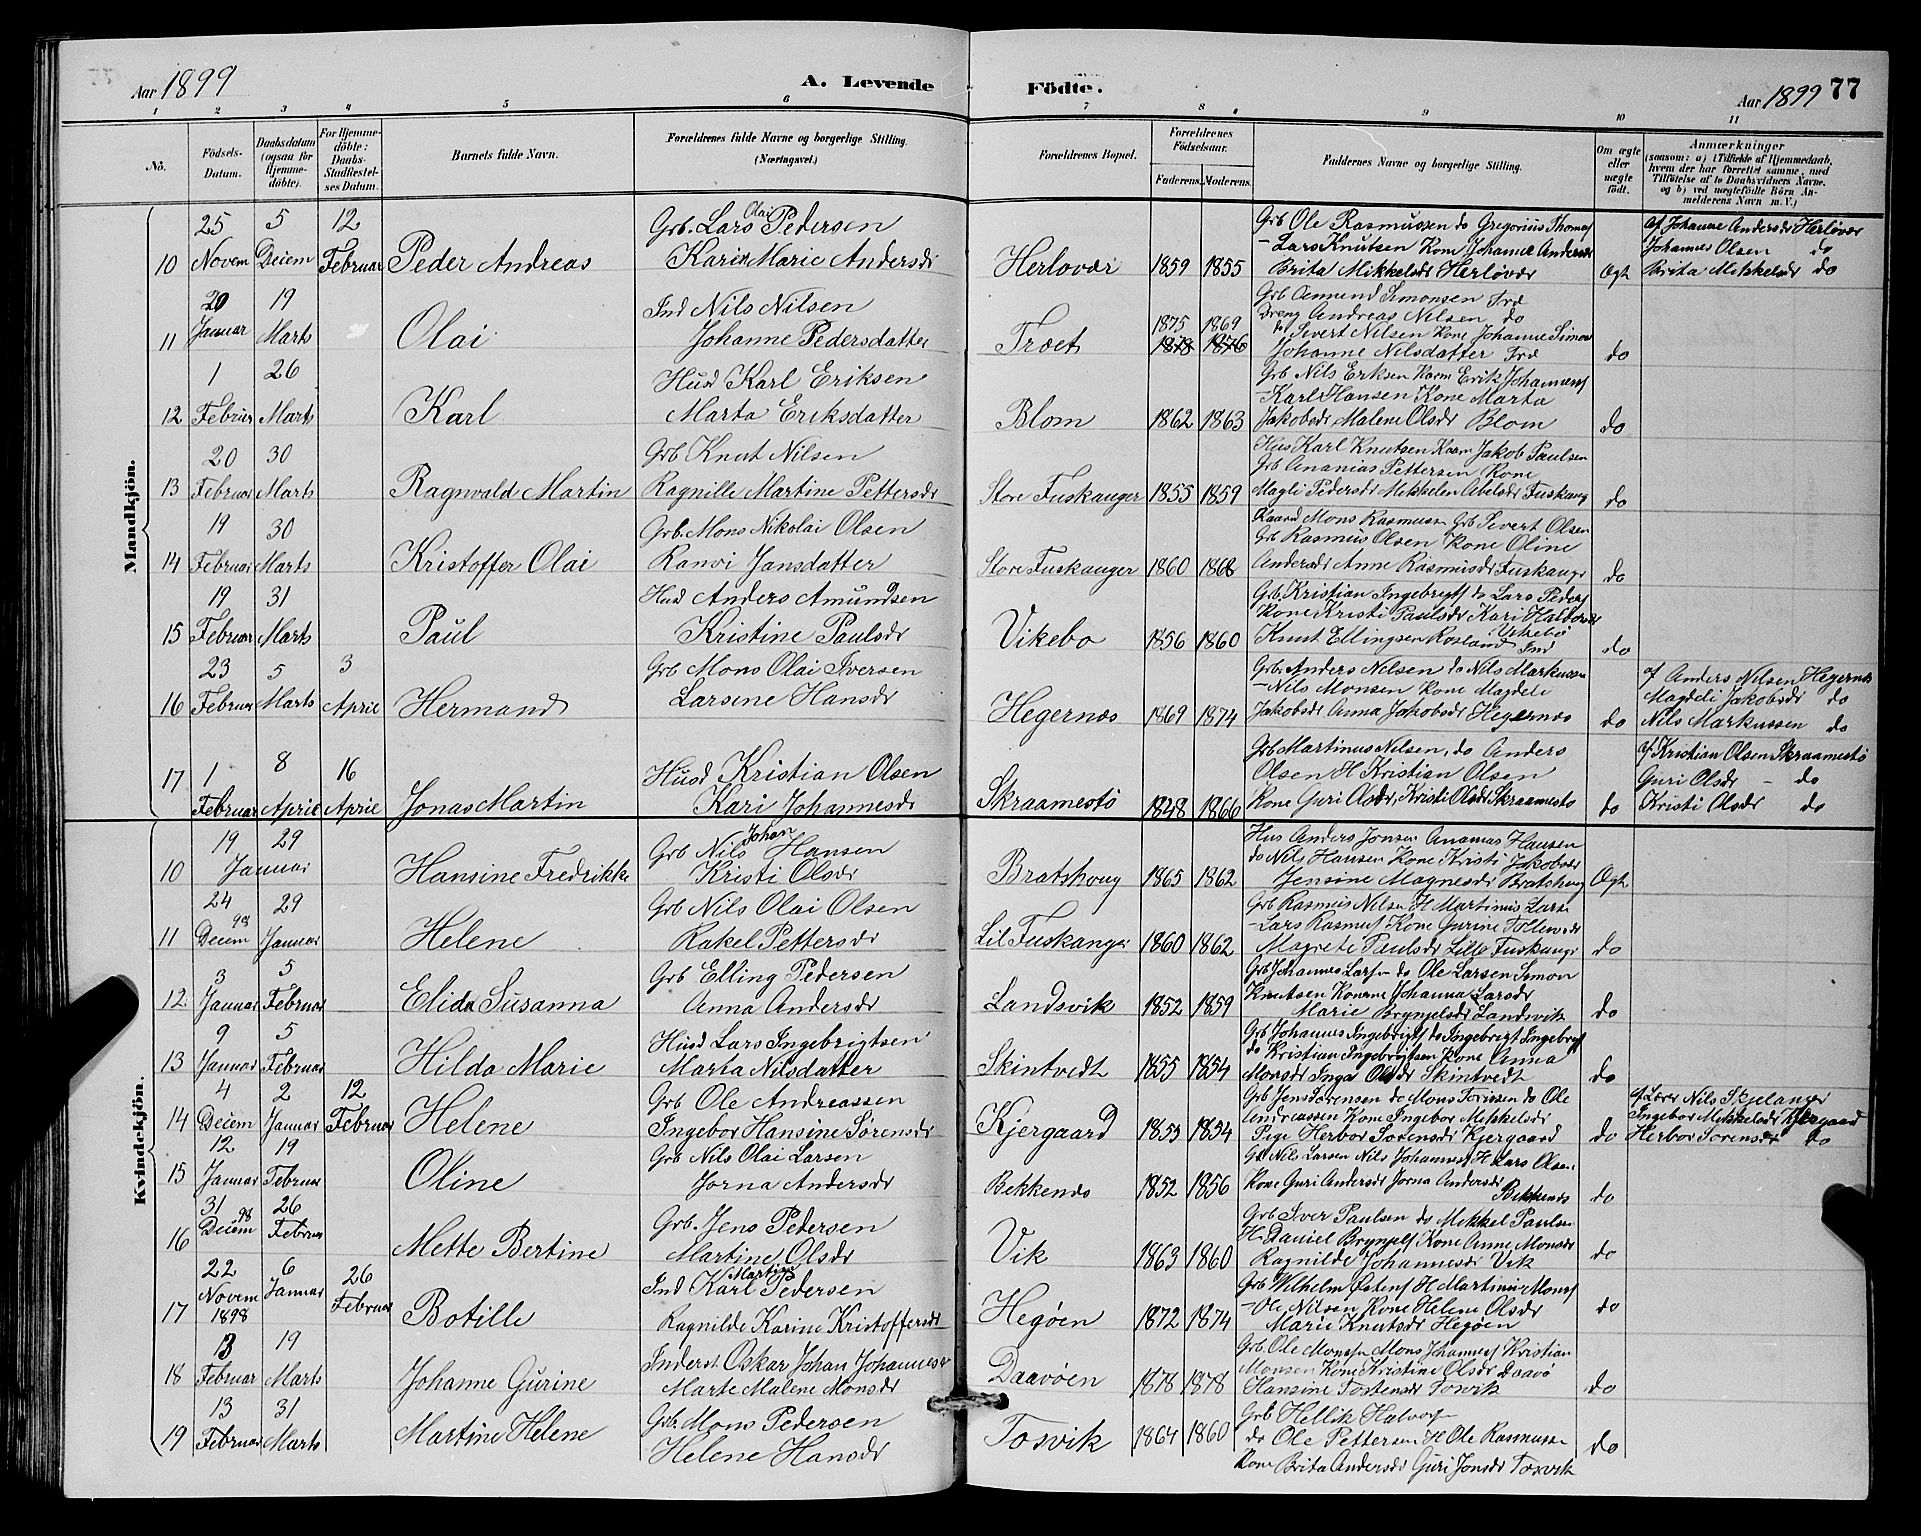 Aar 1899
A. Levende
Födte.
Aar 1899 77
1 2 3 4 5 6 7 8 9 10 11
No.
Födsels-Datum.
Daabsdatum (ogsaa for Hjemme-döbte).
For Hjemme-döbte: Daabs-Stadfæstel-ses Datum.
Barnets fulde Navn.
Forældrenes fulde Navne og borgerlige Stilling. (Næringsvei.)
Forældrenes Bopæl.
Forældrenes Födselsaar.
Faderens. Moderens.
Faddernes Navne og borgerlige Stilling.
Om ægte eller uægte födt.
Anmærkninger
(saasom: a) i Tilfælde af Hjemmedaab, hvem der har forrettet samme, med Tilföielse af to Daabsvidners Navne, og b) ved uægtefödte Börn Anmelderens Navn m. V.)
Mandkjön.
10 25 Novem 5 Deiem 12 Februar Peder Andreas
Grb. Lars Olai Pedersen
Karie Marie Andersdr
Herlovær 1859 1855
Grb Ole Rasmussen do Gregorius Thomas
- Lars Knutsen Kone Johanne Andersdr
Brita Mikkelsdr Herløvær
Ogt
af Johanne Andersdr Herløvær
Johannes Olsen do
Brita Mikkelsdr do
11 20 Januar 19 Marts Olai
Ind Nils Nilsen
Johanne Pedersdatter
Træet 1875 1869
1878 1876
Grb Amund Simonsen Træ
Dreng Andreas Nilsen do
do Sivert Nilsen Kone Johanne Simon
Johanne Nilsdatter Træ
do
12 1 Februar 26 Marts Karl
Husd Karl Eriksen
Marta Eriksdatter
Blom 1862 1863
Grb Nils Eriksen Kaarm Erik Johannes
- Karl Hansen Kone Marta
Jakobsdr Malene Olsdr Blom
do
13 20 Februar 30 Marts Ragnvald Martin
Grb Knut Nilsen
Ragnille Martine Pettersdr
Store Fuskanger 1855 1859
Hus Karl Knutsen Kaarm Jakob Paulsen
Grb Ananias Pettersen Kone
Magli Pedersdr Mikkelen Abelsdr Fuskang
do
14 19 Februar 30 Marts Kristoffer Olai
Grb. Mons Nikolai Olsen
Ranvi Jansdatter
Store Fuskanger 1860 1868
Kaard Mons Rasmuss Grb Sivert Olsen
Grb Rasmus Olsen Kone Oline
Andersdr Anne Rasmusdr Fuskangr
do
15 19 Februar 31 Marts Paul
Husd Anders Amundsen
Kristine Paulsdr
Vikebo 1856 1860
Grb Kristian Ingebrigts do Lars Peders
Kone Kristi Paulsdr Kari Haldorsdr
Knut Ellingsen Rosland Ind Vikebø
do
16 23 Februar 5 Marts 3 April Hermand
Grb Mons Olai Iversen
Larsine Hansdr
Hegernæs 1869 1874
Grb. Anders Nilsen do Nils Markussen
- Nils Monsen Kone Magdeli
Jakobsdr Anna Jakobsdr Hegernæs
do
af Anders Nilsen Hegernæs
Magdeli Jakobsdr do
Nils Markussen do
17 1 Februar 8 April 16 April Jonas Martin
Husd Kristian Olsen
Kari Johannesdr
Skraamestø 1848 1866
Grb Martinus Nilsen, do Anders
Olsen H Kristian Olsen
Kone Guri Olsdr, Kristi Olsdr Skraamestø
do
af Kristian Olsen Skraamestø
Guri Olsdr - do
Kristi Olsdr do
Kvindekjön.
10 19 29 Januar Hansine Fredrikke
Grb Nils Johan Hansen
Kristi Olsdr
Bratshoug 1865 1862
Hus Anders Jonsen Ananias Hansen
do Nils Hansen Kone Kristi Jakobsdr
Jensine Magnesdr Bratshoug
Ogt
11 24 Deiem 98 29 Januar Helene
Grb Nils Olai Olsen
Rakel Pettersdr
Lil Fuskanger 1860 1862
Grb Rasmus Nilsen H Martinus Lars
- Lars Rasmus Kone Gurine
Magrete Paulsdr Lille Fuskangr
do
12 3 Januar 5 Februar Elida Susanna
Grb Elling Pedersen
Anna Andersdr
Landsvik 1852 1859
Grb Johannes Larsen do Ole Larsen Simon
Knutsen Konerne Johanna Larsdr
Marie Brynjelsdr Landsvik
do
13 9 Januar 5 Februar Hilda Marie
Husd Lars Ingebrigtsen
Marta Nilsdatter
Skintvedt 1855 1854
Grb Johannes Ingebrigt do Ingebrigt Ingebrigt
do Kristian Ingebrigtsen Kone Anna
Monsdr Inga Olsdr Skintvedt
do
14 4 Deiem 2 Januar 12 Februar Helene
Grb Ole Andreassen
Ingebor Hansine Sørensdr
Kjergaard 1855 1854
Grb Jens Sørensen do Mons do Ole
Andreassen Kone Ingebor Mikkelsdr
Pige Herbor Sørensdr Kjergaard
do
af Lærer Nils Skjelanger
Ingebor Mikkelsdr Kjergaard
Herbor Sørensdr do
15 12 Januar 19 Februar Oline
Grb Nils Olai Larsen
Jorna Andersdr
Bekkenes 1852 1856
Gb Nils Larsen Nils Johannes H Lars Olsen
Kone Guri Andersdr Jorna Andersdr
Bekkenes
do
16 31 Deiem 98 26 Februar Mette Bertine
Grb. Jens Pedersen
Martine Olsdr
Vik 1863 1860
Grb Iver Paulsen do Mikkel Paulsen
H Daniel Brynjels Kone Anne Monsdr
Ragnilde Johannesdr Vik
do
17 22 Novem 1898 6 Januar 26 Februar Botille
Ind Karl Martin Pedersen
Ragnilde Karine Kristoffersdr
Hegøen 1872 1874
Grb Wilhelm Østens H Martinus Mons
- Ole Nilsen Kone Helene Olsdr
Marie Knutsdr Hegøen
do
18 13 Februar 19 Marts Johanne Gurine
Inderst Oskar Johan Johannessen
Marte Malene Monsdr
Daavøen 1878 1878
Grb Ole Monsen Mons Johannes Kristian
Monsen Kone Kristine Olsdr Daavø
Hansine Torsensdr Tosvik
do
19 13 Februar 31 Marts Martine Helene
Grb. Mons Pedersen
Helene Hansdr
Tosvik 1864 1860
Grb Hellik Halvors
do Ole Pettersen H Ole Rasmussen
Kone Brita Andersdr Guri Jonsdr Tosvik
do